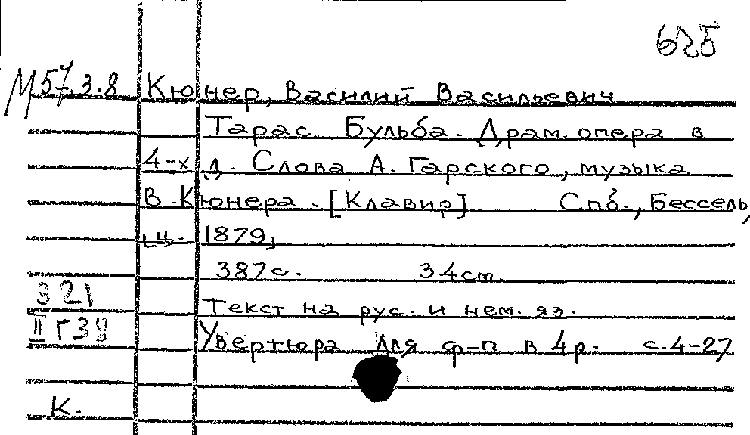 625
М57.3.8 Кюнер, Василий Васильевич
Тарас Бульба. Драм. опера в
4-х д. Слова А. Гарского, музыка
В. Кюнера. [Клавир] Спб., Бессель,
ц. 1879,
387с. 34см.
321 Текст на рус. и нем. яз.
II Г39 Увертюра для ф-п в 4р. с.4-27
К.